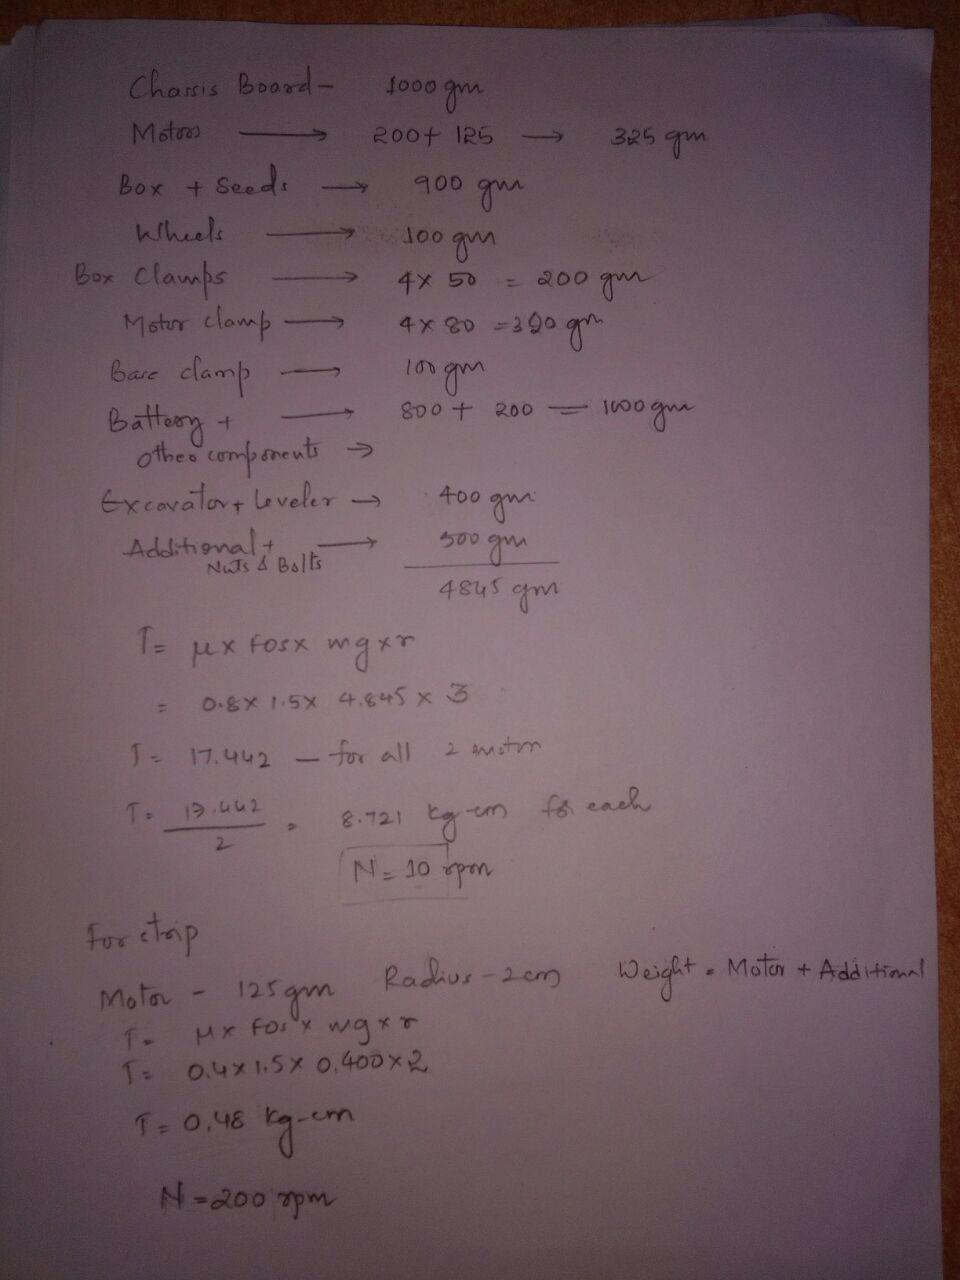 Chassis Board - 1000 gm
Motors → 200 + 125 → 325 gm
Box + Seeds → 900 gm
Wheels → 100 gm
Box Clamps → 4 x 50 = 200 gm
Motor clamp → 4 x 80 = 320 gm
Base clamp → 100 gm
Battery + → 800 + 200 = 1000 gm
other components →
Excavator + Leveler → 400 gm
Additional + → 500 gm
Nuts & Bolts
4845 gm
T = μ x Fos x mg x r
= 0.8 x 1.5 x 4.845 x 3
T = 17.442 - for all 2 motor
T = 17.442 / 2 = 8.721 kg-cm for each
N = 10 rpm
For strip
Motor - 125 gm Radius - 2 cm Weight = Motor + Additional
T = μ x Fos x mg x r
T = 0.4 x 1.5 x 0.400 x 2
T = 0.48 kg-cm
N = 200 rpm